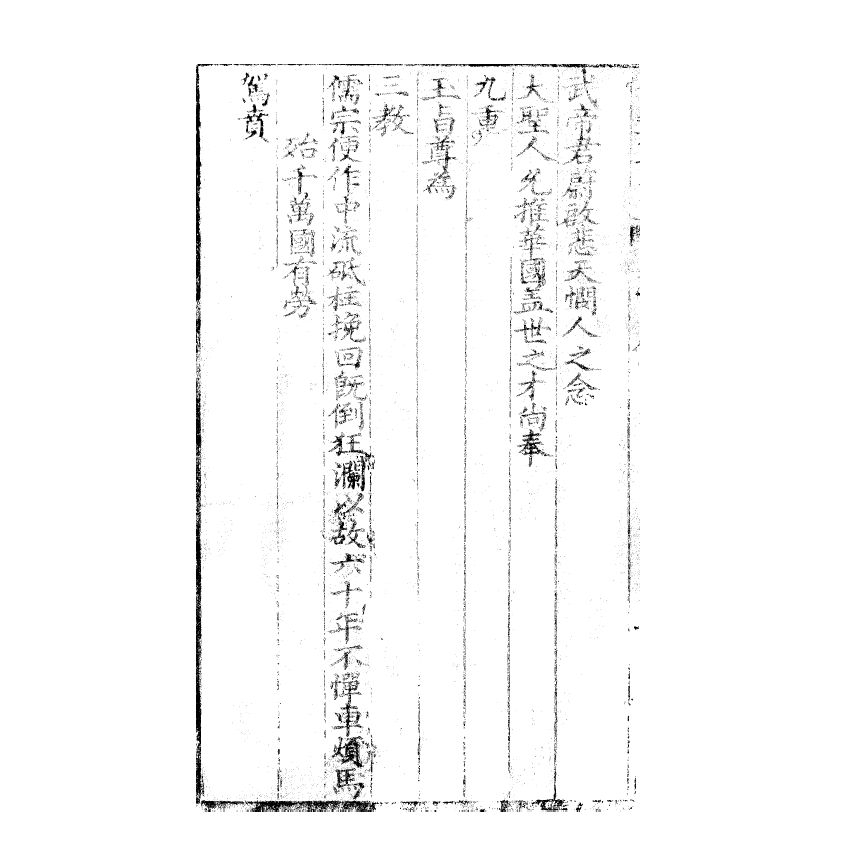 武帝君蔚啟悲天憫人之念
大聖人允推華國盖世之才尚奉
九重
玉旨尊為
三教
儒宗便作中流砥柱挽回既倒狂瀾以故六十年不憚車煩馬
殆千萬國有勞
駕賁